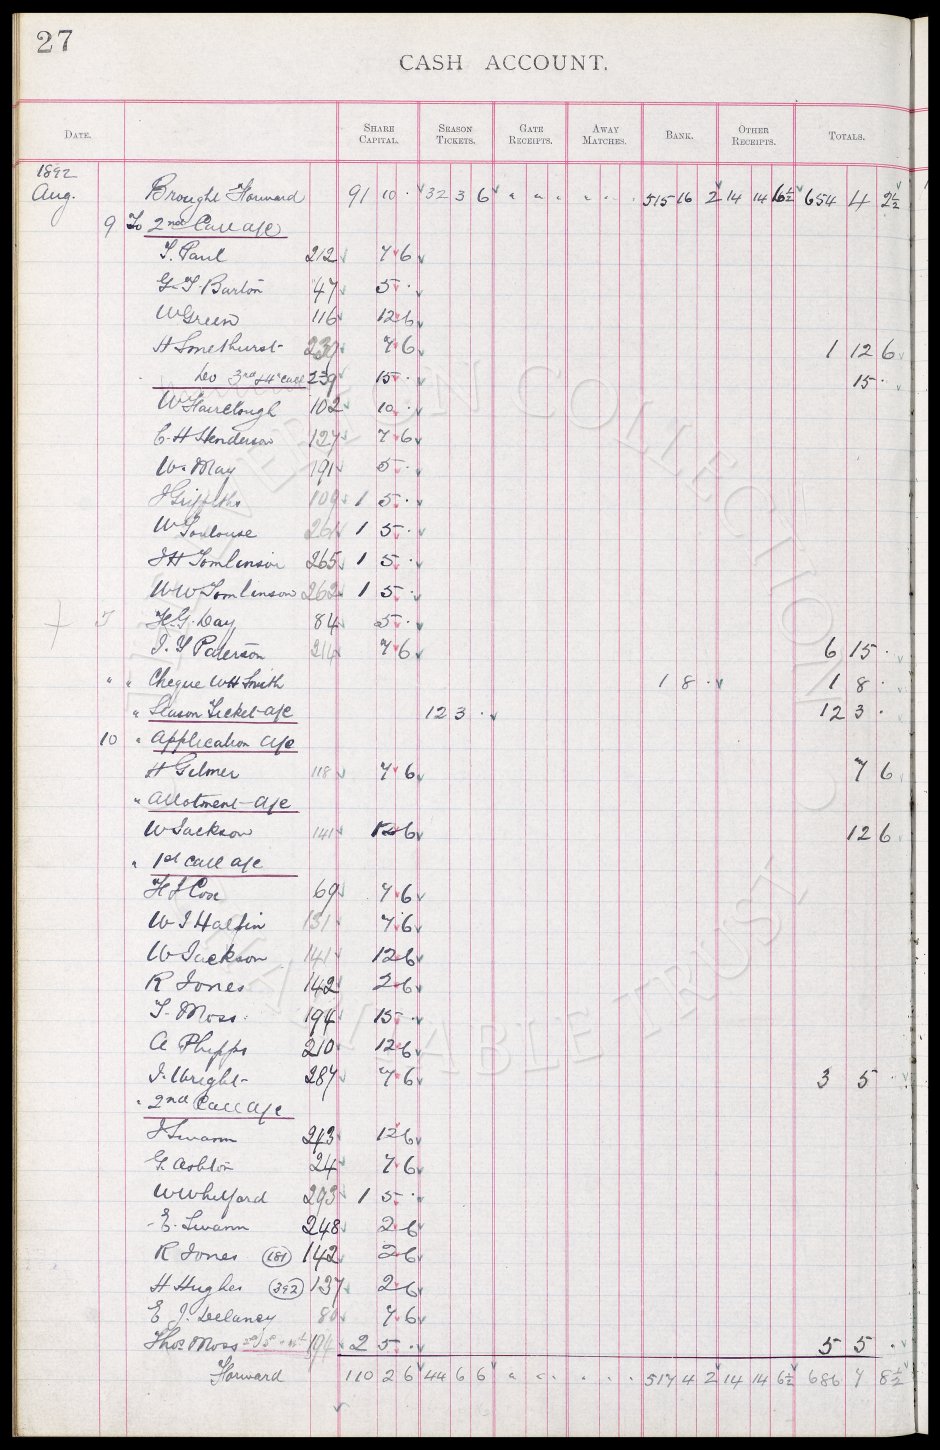 27
CASH ACCOUNT.
DATE. SHARE CAPITAL. SEASON TICKETS. GATE RECEIPTS. AWAY MATCHES. BANK. OTHER RECEIPTS. TOTALS.
1892
Aug. Brought Forward 91 10 · 32 3 6 " " " " · · 515 16 2 14 14 6½ 654 4 2½
9 To 2nd Call a/c
T. Paul 212 7 6
G. T. Barton 47 5 ·
W Green 116 12 6
H Smethurst 239 7 6 1 12 6
Do 3rd & 4th call 239 15 · 15 ·
W Fairclough 102 10 ·
E. H Henderson 127 7 6
W. May 191 5 ·
J Griffiths 109 1 5 ·
W Toulouse 264 1 5 ·
J H Tomlinson 265 1 5 ·
W W Tomlinson 262 1 5 ·
5 H. G. Day 84 5 ·
J. Y Paterson 214 7 6 6 15 ·
" " Cheque W H Smith 1 8 · 1 8 ·
" Season Ticket a/c 12 3 · 12 3 ·
10 " Application a/c
H Gilmer 118 7 6 7 6
" Allotment a/c
W Jackson 141 12 6 12 6
" 1st Call a/c
H J Cox 69 7 6
W J Halpin 131 7 6
W Jackson 141 12 6
R Jones 142 2 6
T. Moss 194 15 ·
A Phipps 210 12 6
J. Wright 287 7 6 3 5 ·
" 2nd Call a/c
J Swann 243 12 6
G. Ashton 24 7 6
W Whelford 293 1 5 ·
E. Swann 248 2 6
R Jones (181) 142 2 6
H Hughes (392) 137 2 6
E J. Delaney 80 7 6
Thos Moss 194 2 5 · 5 5 ·
Forward 110 2 6 44 6 6 " " " · · · 517 4 2 14 14 6½ 686 7 8½
EVERTON COLLECTION
CHARITABLE TRUST